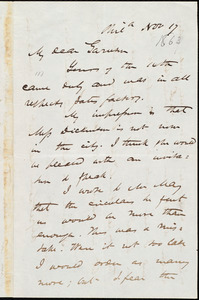 Phil.a Nov 17
1863
My dear Garrison
Yours of the 16th
came duly and was in all
respects satisfactory.
My impression is that
Miss Dickinson is not now
in the city. I think she would
be pleased with an invita-
tion to speak.
I wrote to Mr May
that the circulars he sent
us would be more than
enough. This was a mis-
take. Were it not too late
I would order as many
more; but I fear the